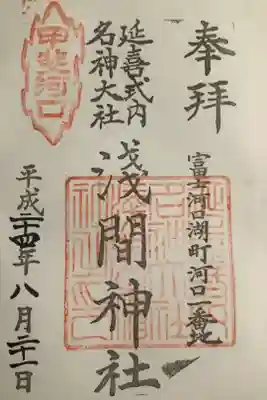 奉拝
富士河口湖町河口一番地
延喜式内
名神大社
浅間神社
甲斐河口
平成二十四年八月二十一日